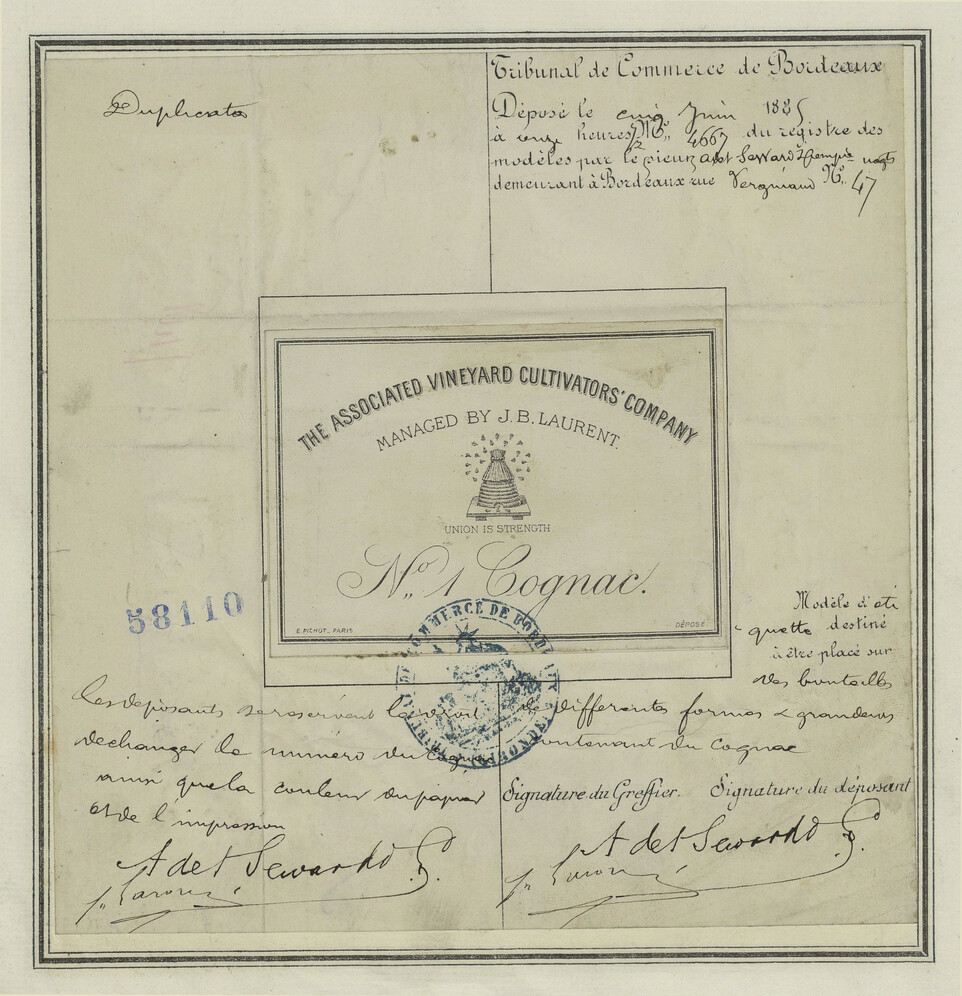 Duplicata
Tribunal de Commerce de Bordeaux
Déposé le cinq Juin 1885
à onze heures 1/2 No. 4667 du registre des
modèles par le sieur Adet Seward & Compie negts
demeurant à Bordeaux rue Vergniaud No. 47
THE ASSOCIATED VINEYARD CULTIVATORS' COMPANY
MANAGED BY J. B. LAURENT.
UNION IS STRENGTH
No. 1 Cognac.
E. PICHOT, PARIS
DÉPOSÉ
58110
Modèle d'éti
quette destiné
à être placé sur
des bouteilles
de différentes formes & grandeurs
contenant du Cognac
Les déposants se réservent le droit
de changer le numéro du Cognac
ainsi que la couleur du papier
et de l'impression
TRIBUNAL DE COMMERCE DE BORDEAUX
Signature du Greffier.
Signature du déposant
Adet Seward & Co
Adet Seward & Co